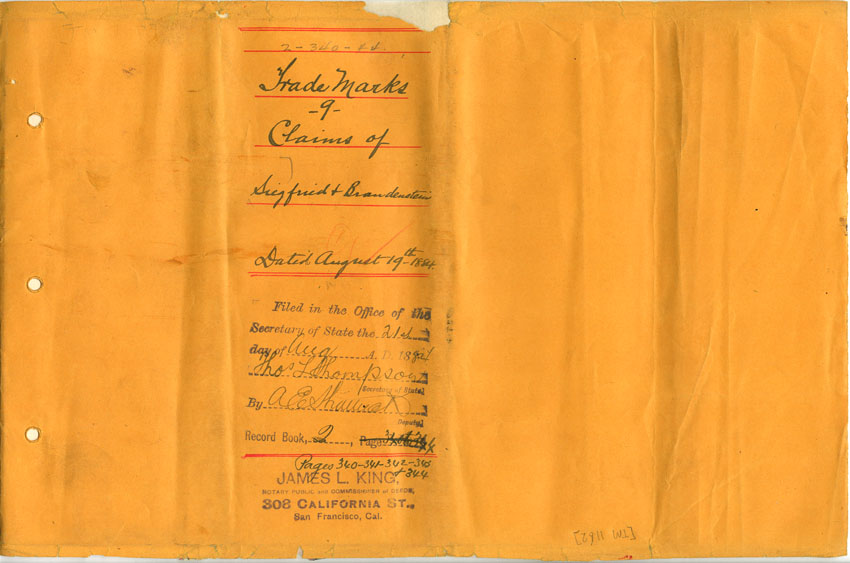 2-340-44.
Trade Marks
-9-
Claims of
Siegfried & Brandenstein
Dated August 19th 1884.
Filed in the Office of the
Secretary of State the 21st
day of Aug A. D. 1884
Thos L Thompson
Secretary of State
By A E
Deputy
Record Book, 2, Pages
Pages 340-341-342-343
& 344
JAMES L. KING,
NOTARY PUBLIC and COMMISSIONER of DEEDS,
308 CALIFORNIA ST.,
San Francisco, Cal.
[TM 1182]